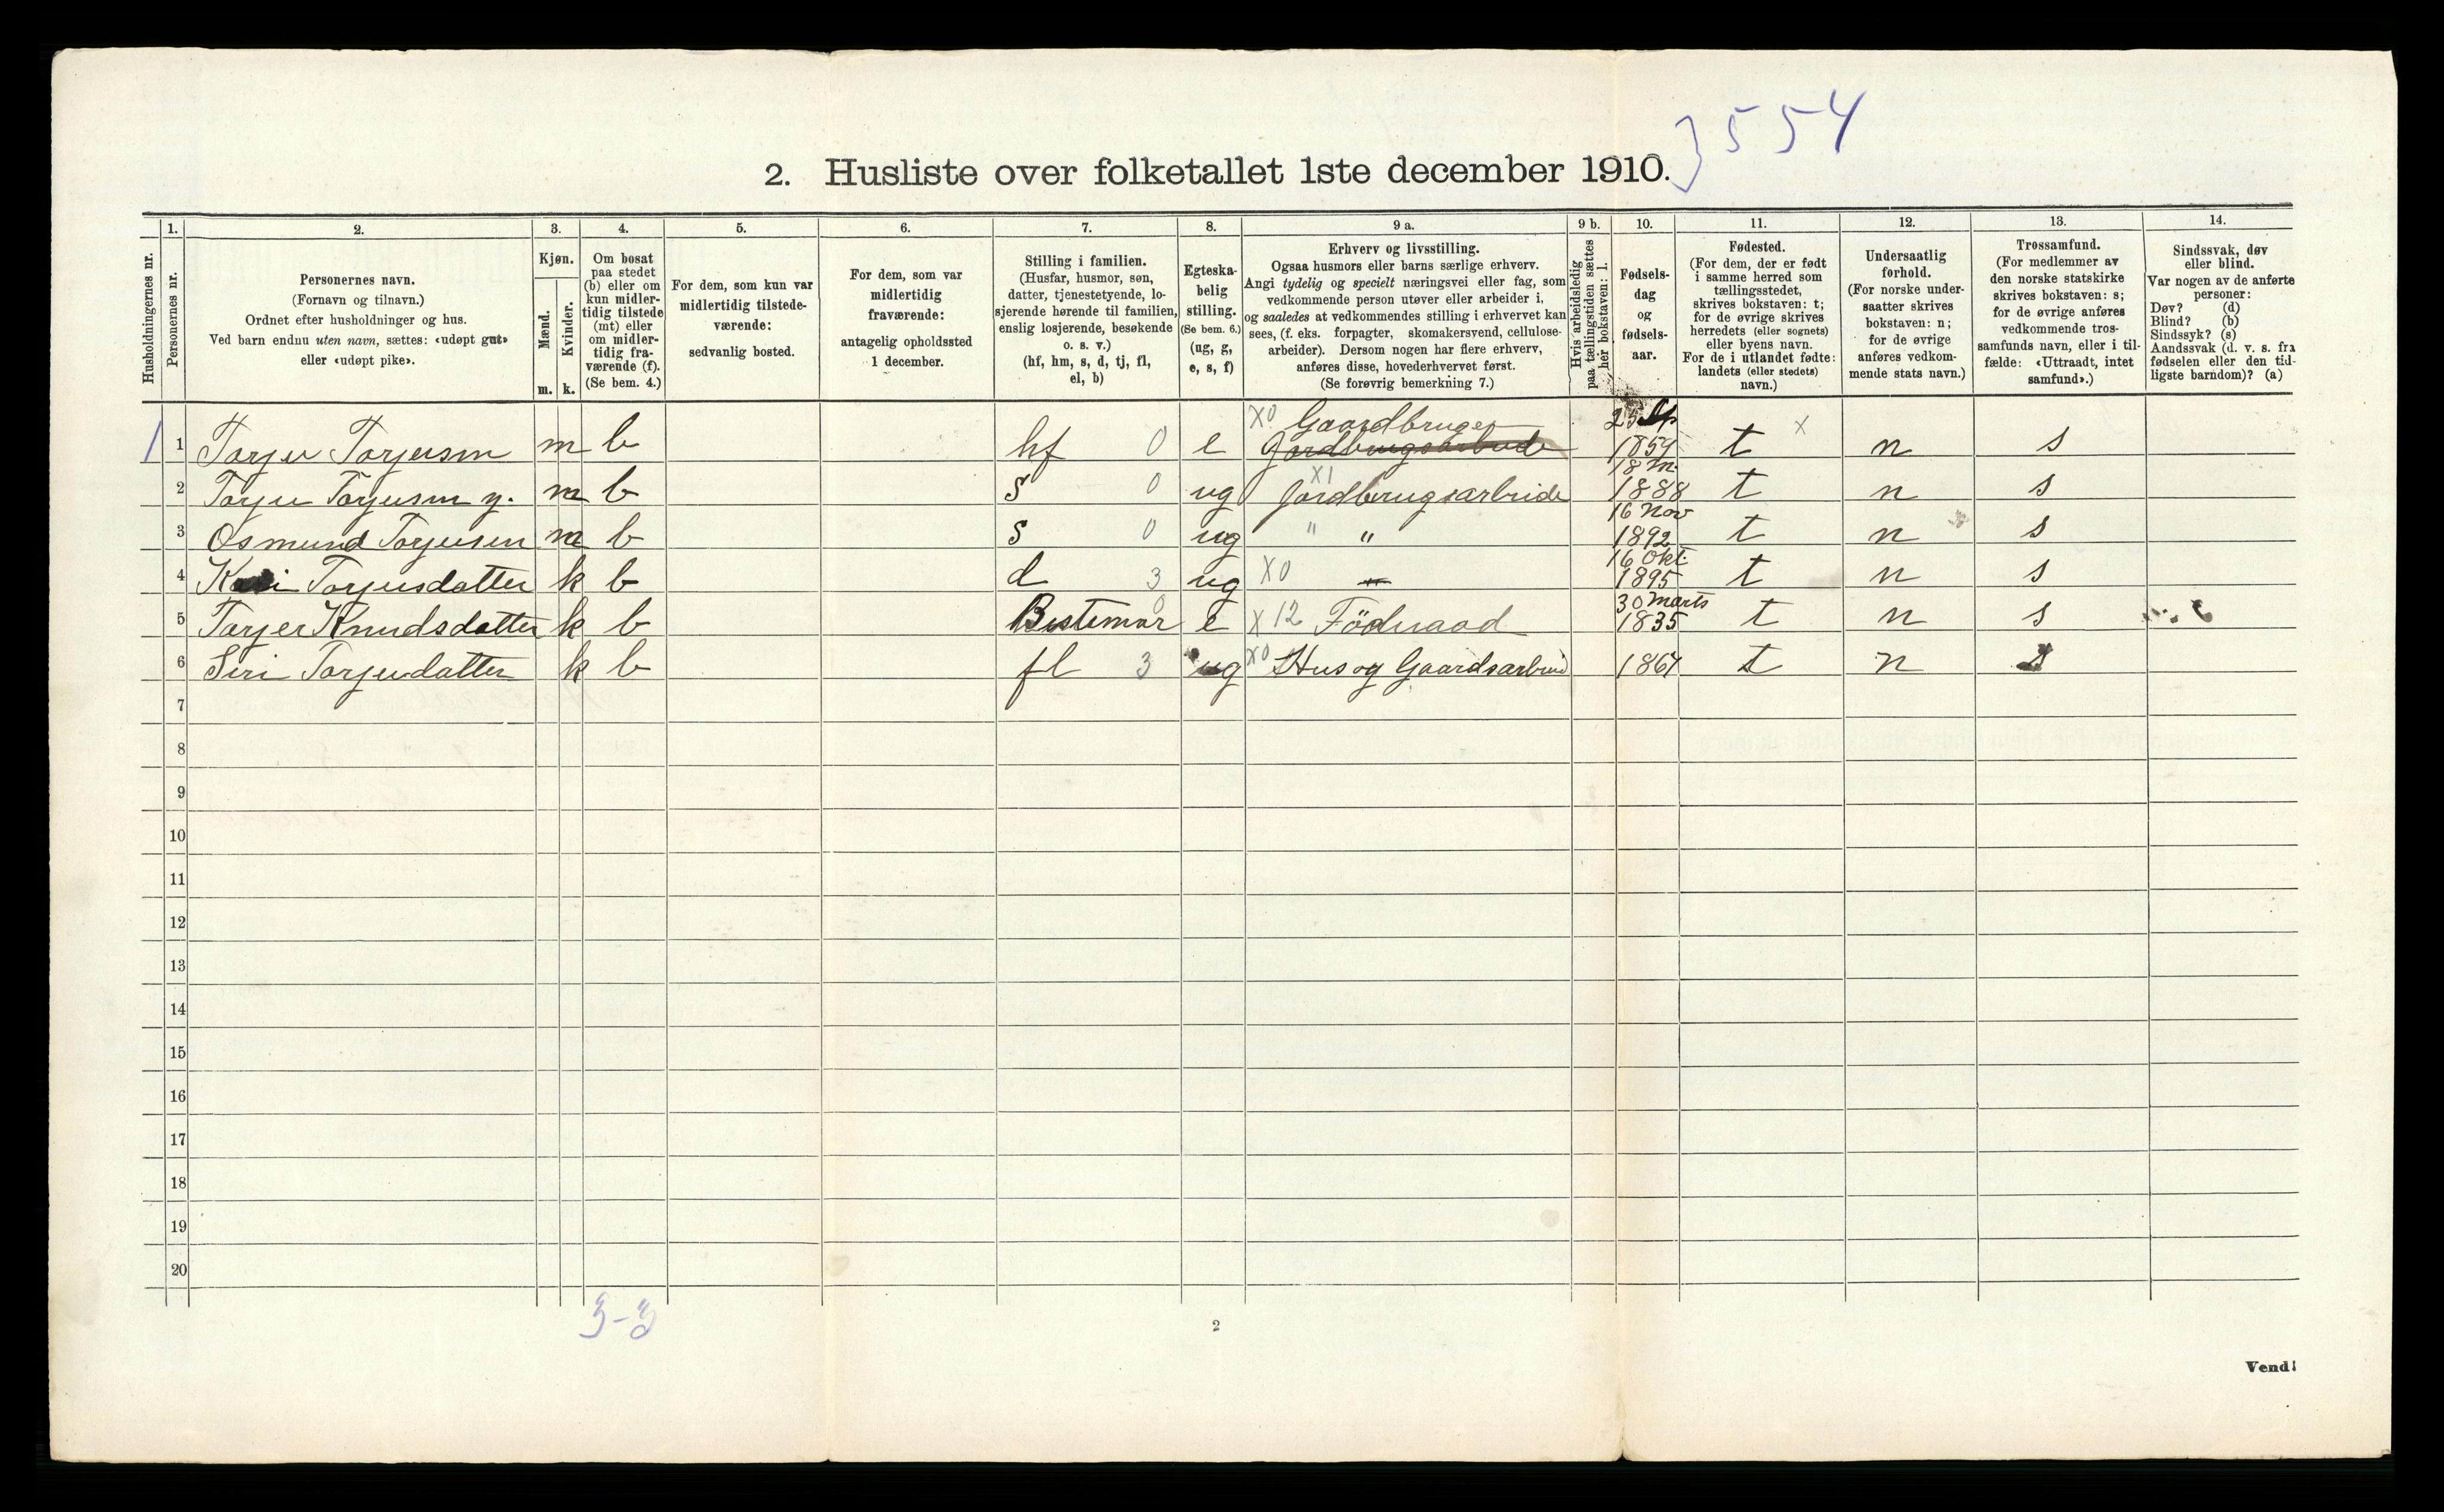 } 554
2. Husliste over folketallet 1ste december 1910.
Husholdningernes nr.
1.
Personernes nr.
2.
Personernes navn.
(Fornavn og tilnavn.)
Ordnet efter husholdninger og hus.
Ved barn endnu uten navn, sættes: «udøpt gut»
eller «udøpt pike».
3.
Kjøn.
Mænd.
m.
Kvinder.
k.
4.
Om bosat
paa stedet
(b) eller om
kun midler-
tidig tilstede
(mt) eller
om midler-
tidig fra-
værende (f).
(Se bem. 4.)
5.
For dem, som kun var
midlertidig tilstede-
værende:
sedvanlig bosted.
6.
For dem, som var
midlertidig
fraværende:
antagelig opholdssted
1 december.
7.
Stilling i familien.
(Husfar, husmor, søn,
datter, tjenestetyende, lo-
sjerende hørende til familien,
enslig losjerende, besøkende
o. s. v.)
(hf, hm, s, d, tj, fl,
el, b)
8.
Egteska-
belig
stilling.
(Se bem. 6.)
(ug, g,
e, s, f)
9 a.
Erhverv og livsstilling.
Ogsaa husmors eller barns særlige erhverv.
Angi tydelig og specielt næringsvei eller fag, som
vedkommende person utøver eller arbeider i,
og saaledes at vedkommendes stilling i erhvervet kan
sees, (f. eks. forpagter, skomakersvend, cellulose-
arbeider). Dersom nogen har flere erhverv,
anføres disse, hovederhvervet først.
(Se forøvrig bemerkning 7.)
9 b.
Hvis arbeidsledig
paa tællingstiden sættes
her bokstaven: l.
10.
Fødsels-
dag
og
fødsels-
aar.
11.
Fødested.
(For dem, der er født
i samme herred som
tællingsstedet,
skrives bokstaven: t;
for de øvrige skrives
herredets (eller sognets)
eller byens navn.
For de i utlandet fødte:
landets (eller stedets)
navn.)
12.
Undersaatlig
forhold.
(For norske under-
saatter skrives
bokstaven: n;
for de øvrige
anføres vedkom-
mende stats navn.)
13.
Trossamfund.
(For medlemmer av
den norske statskirke
skrives bokstaven: s;
for de øvrige anføres
vedkommende tros-
samfunds navn, eller i til-
fælde: «Uttraadt, intet
samfund».)
14.
Sindssvak, døv
eller blind.
Var nogen av de anførte
personer:
Døv? (d)
Blind? (b)
Sindssyk? (s)
Aandssvak (d. v. s. fra
fødselen eller den tid-
ligste barndom)? (a)
1 1 Torjer Torjusen m b hf 0 e X0 Gaardbruger Jordbrugsarbeide 25 Sep 1859 t x n s
2 Torjer Torjusen y. m b s 0 ug X1 Jordbrugsarbeide 18 m 1888 t n s
3 Osmund Torjusen m b s 0 ug " " 16 Nov 1892 t n s
4 Kari Torjusdatter k b d 3 ug X0 " 16 Okt. 1895 t n s
5 Torjer Knudsdatter k b Bestemor 0 e X 12 Föderaad 30 Marts 1835 t n s
6 Siri Torjusdatter k b fl 3 ug X0 Hus og Gaardsarbeid 1867 t n s
7
8
9
10
11
12
13
14
15
16
17
18
19
20
3-3
2
Vend!